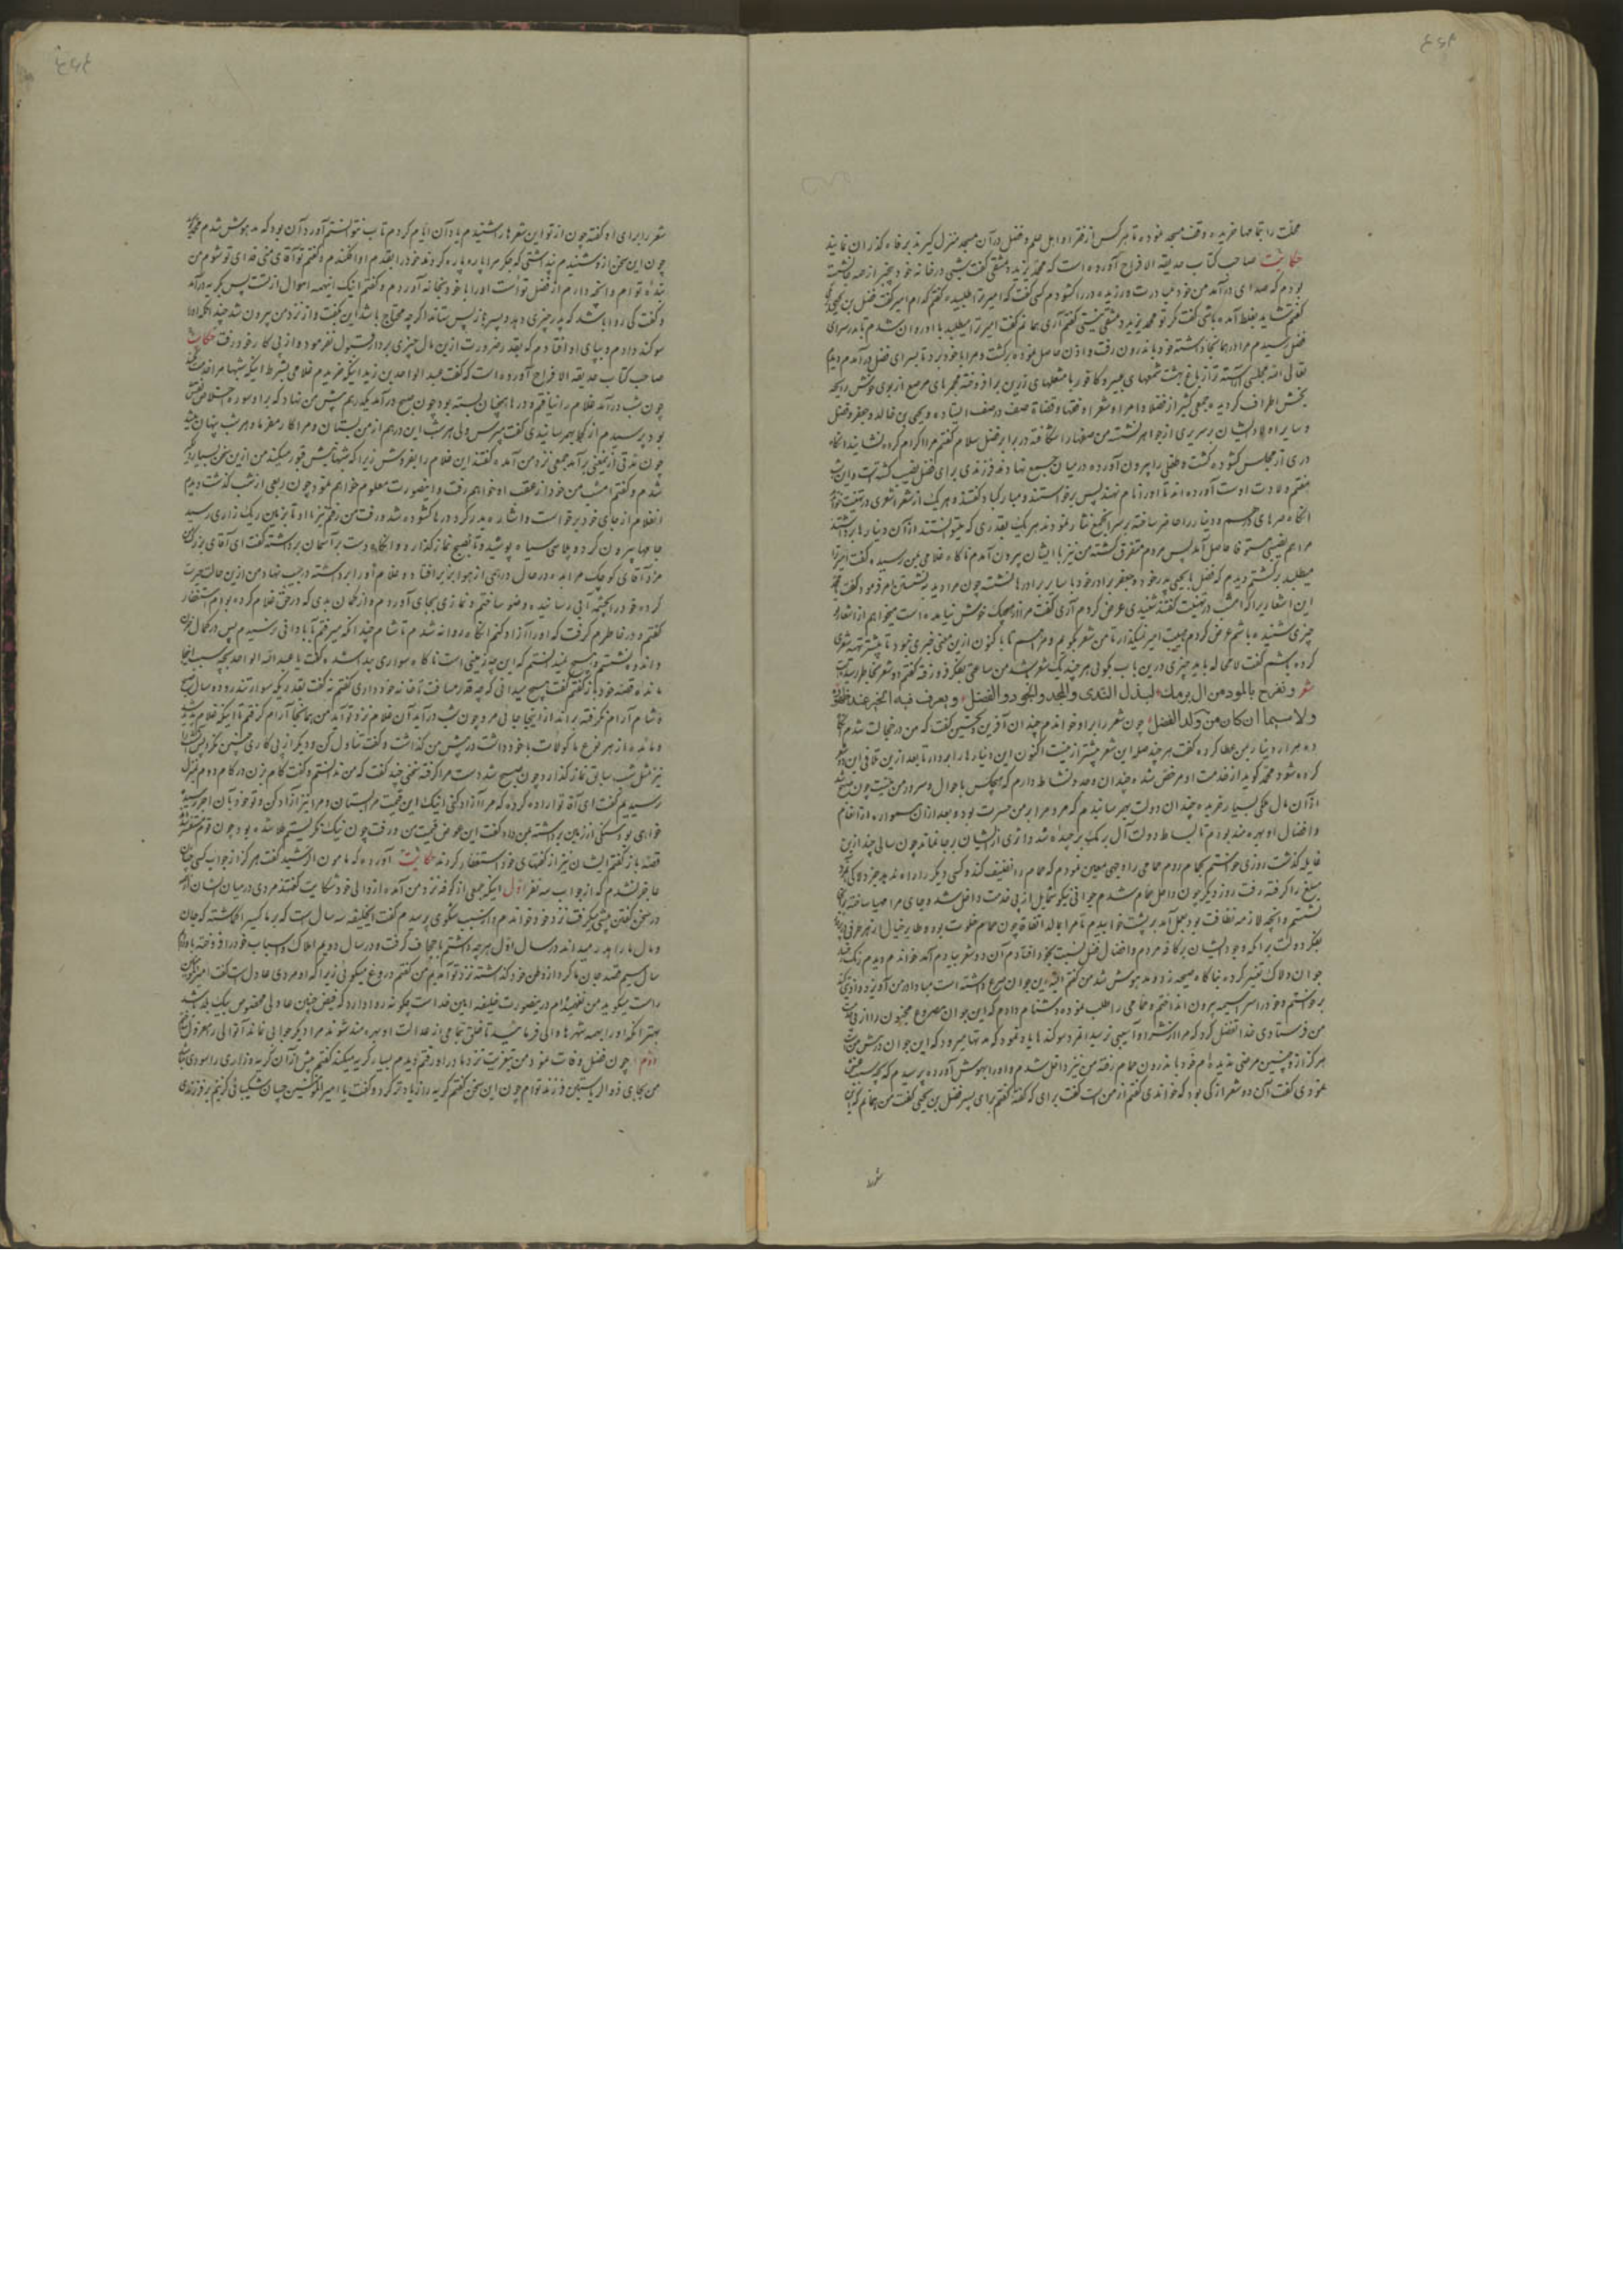 محلت را بتمامها خریده وقف مسجد نموده تا هر کس از فقرا و اهل علم و فضل در آن مسجد منزل گیرند برفاه گذران نمایند
حکایت صاحب کتاب حدیقه الافراح آورده است که محمد بن یزید دمشقی گفت شبی در خانه خود
بودم که صدای در آمد من خود مبادرت ورزیده در را گشودم کسی گفت که امیر ترا طلبیده گفتم کدام امیر گفت فضل بن یحیی
گفتم شاید بغلط آمده باشی گفت مگر تو محمد بن یزید دمشقی نیستی گفتم آری همانم گفت امیر ترا میطلبد با او روان شدم تا بدر سرای
فضل رسیدم مرا در همانجا داشته خود باندرون رفت و اذن حاصل نموده برگشت و مرا با خود برد تا بسرای فضل در آمدم دیدم
تعالی الله مجلسی آراسته تر از باغ بهشت شمعهای عنبر و کافور با مشعلهای زرین برافروخته مجمرهای مرصع از بوی خوش رایحه
بخش اطراف گردیده جمعی کثیر از فضلا و امرا و شعرا و فقها و قضاة صف در صف ایستاده و یحیی بن خالد و جعفر و فضل
و سایر اولاد ایشان بر سریری از جواهر نشسته من صفها را شکافته در برابر فضل سلام گفتم مرا اکرام کرده نشانید آنگاه
دری از مجلس گشوده گشت و طفلی را بیرون آورده در میان جمع نهادند فرزندی برای فضل نصیب گشته است و این شب
هفتم ولادت اوست آورده اند تا او را نام نهند پس برخواستند و مبارکباد گفتند و هر یک از شعرا شعری در تهنیت خواند
آنگاه صرهای درهم و دینار را حاضر ساخته بر سر آنجمع نثار نمودند هر یک بقدری که میتوانستند از آن دینارها برداشتند
مرا هم نصیبی مستوفا حاصل آمد پس مردم متفرق گشته من نیز با ایشان بیرون آمدم ناگاه غلامی بمن رسیده گفت امیر ترا
میطلبد برگشتم دیدم که فضل با یحیی پدر خود و جعفر برادر خود با سایر برادرها نشسته چون مرا دید به نشستن امر فرمود گفت
این اشعاریرا که امشب در تهنیت گفتند شنیدی عرض کردم آری گفت مرا از هیچیک خوش نیامده است میخواهم از اشعار تو
چیزی شنیده باشم عرض کردم هیبت امیر نمیگذارد تا من شعر بگویم
کرده باشم گفت لامحاله باید چیزی درین باب بگوئی هر چند یک شعر باشد من ساعتی بفکر فرو رفته گفتم دو شعر بخاطر رسید است
شعر و نفرح بالمولود من آل برمك لبذل الندى والمجد والجود والفضل ويعرف فيه الخير عند
ولا سيما ان كان من ولد الفضل چون شعر را بر او خواندم چندان آفرین و تحسین گفت که من در خجالت شدم
ده هزار دینار بمن عطا کرده گفت هر چند صله این شعر بیشتر ازینست اکنون این دینارها را بردار تا بعد ازین تلافی این
کرده شود محمد گوید از خدمت او مرخص شده چندان وجد و نشاط دارم که هیچکس با حوال و سرور من نیست چون صبح شد
از آن مال ملکی بسیار خریده چندان دولت بهم رسانیدم که مردم را بر من حسرت بود و بعد از آن همواره از انعام
و افضال او بهره مند بودم تا بساط دولت آل برمک برچیده شد و اثری از ایشان بر جا نماند چون سالی چند ازین
بگذشت روزی خواستم بحمام روم حمامی را وجهی معین نمودم که حمام را تنظیف کند و کسی دیگر را راه ندهد بجز دلاکی
مبلغ را گرفته رفت روز دیگر چون داخل حمام شدم جوانی نیکو شمایل از پی خدمت داخل شد و جای مرا مهیا ساخته
نشستم و آنچه لازمه نظافت بود بعمل آمد بر پشت خوابیدم تا مرا بمالد اتفاقا چون حمام خلوت بود و طایر خیال از هر طرفی
بفکر دولت برامکه و جود ایشان بر کافه مردم و افضال فضل نسبت بخود افتادم آن دو شعر بیادم آمد خواندم دیدم رنگ
جوان دلاک تغییر کرده بناگاه صیحه زد و مدهوش شد من گفتم البته این جوان صرع داشته است مبادا در من آویزد و اذیتی کند
برخواستم و خود را سراسیمه بیرون انداختم و حمامی را طلب نموده دشنام دادم که این جوان مصروع مجنون را از پی خدمت
من فرستادی خدا تفضل کرد که مرا از شر او آسیبی نرسید مرد سوگندها یاد نمود که مدتها میرود که این جوان در پیش منست
هرگز از او چنین مرضی ندیده ام خود باندرون حمام رفته من نیز داخل شدم و او را بهوش آورده پرسیدم که چه سبب
نمودی گفت آن دو شعر از کی بود که خواندی گفتم از من است گفت برای که گفته گفتم برای پسر فضل بن یحیی گفت من همانم که این
شعر را
شعر را برای او گفته چون از تو این شعرها را شنیدم یاد آن ایام کردم تاب نتوانستم آورد آن بود که مدهوش شدم محمد گوید
چون این سخن از و شنیدم پنداشتی که جگر مرا پاره پاره کردند خود را بقدم او افکندم و گفتم تو آقای منی فدای تو شوم من
بنده توام و آنچه دارم از فضل تو است او را با خود بخانه آوردم و گفتم اینک اینهمه اموال از تست پس بگریه در آمد
و گفت کی روا باشد که پدر چیزی دهد و پسر باز پس ستاند اگر چه محتاج باشد این بگفت و از نزد من بیرون شد چندانکه او را
سوگند دادم و بپای او افتادم که بقدر ضرورت ازین مال چیزی بردار قبول نفرمود و از پی کار خود رفت حکایت
صاحب کتاب حدیقه الافراح آورده است که گفت عبد الواحد بن زید اینکه خریدم غلامی بشرط اینکه شبها مرا خدمت کند
چون شب در آمد غلام را نیافتم و درها همچنان بسته بود چون صبح در آمد یکدرهم پیش من نهاد که بر او سوره اخلاص نقش
بود پرسیدم از کجا بهم رسانیدی گفت مپرس ولی هر شب این درهم از من بستان و مرا کار مفرما و هر شب پنهان میشد
چون مدتی ازینمعنی برآمد جمعی نزد من آمده گفتند این غلام را بفروش زیرا که شبها نبش قبور میکند من ازین سخن بسیار دلگیر
شدم و گفتم امشب من خود از عقب او خواهم رفت و اینصورت معلوم خواهم نمود چون ربعی از شب گذشت دیدم
آنغلام از جای خود برخواست و اشاره بدر کرد درها گشوده شد و رفت من رفتم نیز با او تا بزمین ریگ زاری رسید
جامها بیرون کرد و پلاسی سیاه پوشید و تا بصبح نماز گذارد و آنگاه دست بر آسمان برداشته گفت ای آقای بزرگ من
مزد آقای کوچک مرا بده در حال درهمی از هوا بزیر افتاد و غلام او را برداشته در جیب نهاد من ازین حالت حیرت
کرده خود را بچشمه آبی رسانیده وضو ساختم و نمازی بجای آوردم و از گمان بدی که در حق غلام کرده بودم استغفار
گفتم و در خاطرم گرفت که او را آزاد کنم آنگاه روانه شدم تا شام چندانکه میرفتم بآبادانی نرسیدم پس در کمال حزن
و اندوه نشستم و هیچ نمیدانستم که این چه زمینی است ناگاه سواری پیدا شده گفت یا عبد الواحد بچه سبب اینجا
مانده قصه خود باز گفتم گفت هیچ میدانی که چه قدر مسافت تا خانه خود داری گفتم نه گفت بقدریکه سوار تندرو دو سال صبح
تا شام آرام نگرفته براند از اینجا جائی مرو چون شب در آید آن غلام نزد تو آید من همانجا آرام گرفتم تا اینکه غلام پدید شد
و مائده از هر نوع ماکولات با خود داشت در پیش من گذاشت و گفت تناول کن و دیگر از پی کاری چنین مگرد پس آنشب را
نیز مثل شب سابق نماز گذارد چون صبح شد دست مرا گرفته سخنی چند گفت که من ندانستم و گفت گام بزن در گام دوم بمنزل
رسیدیم گفت ای آقا تو اراده کرده که مرا آزاد کنی اینک این قیمت مرا بستان و مرا نیز آزاد کن و تو خود بآن اجر رسیده
خواهی بود سنگی از زمین برداشته بمن داد گفت این عوض قیمت من و رفت چون نیک نگریستم طلا شده بود چون قوم
قصه باز گفتم ایشان نیز از گفتهای خود استغفار کردند حکایت آورده که مامون الرشید گفت هرگز از جواب کسی چنان
عاجز نشدم که از جواب سه نفر اول اینکه جمعی از کوفه نزد من آمده از والی خود شکایت گفتند مردی در میان ایشان
در سخن گفتن پیشی میگرفت نزد خود خواندم و سبب شکوی پرسیدم گفت ایخلیفه سه سال است که بر ما کسیرا گماشته که جان
و مال ما را بدر میداند در سال اول هر چه داشتیم باجحاف گرفت و در سال دویم املاک و اسباب خود را فروخته باو دادیم
سال سیم قصد جان ما کرد از وطن خود گذشته نزد تو آمدیم من گفتم دروغ میگوئی زیرا که او مردی عادل است گفت امیر المومنین
راست میگوید من نفهمیده ام درینصورت خلیفه امین خداست چگونه روا دارد که فیض چنین عادلی مخصوص بیک بلد باشد
بهتر آنکه او را بهمه شهرها والی فرمائید تا خلق تمامی از عدالت او بهره مند شوند مرا دیگر جوابی نماند آنوالی را معزول
دوم چون فضل وفات نمود من بتعزیت نزد مادر او رفتم دیدم بسیار گریه میکند گفتم بیش از آن گریه و زاری را سودی
من بجای ذو الریاستین فرزند توام چون این سخن گفتم گریه را زیاده تر کرد و گفت یا امیر المومنین چسان شکیبائی گزینم بر فرزندی